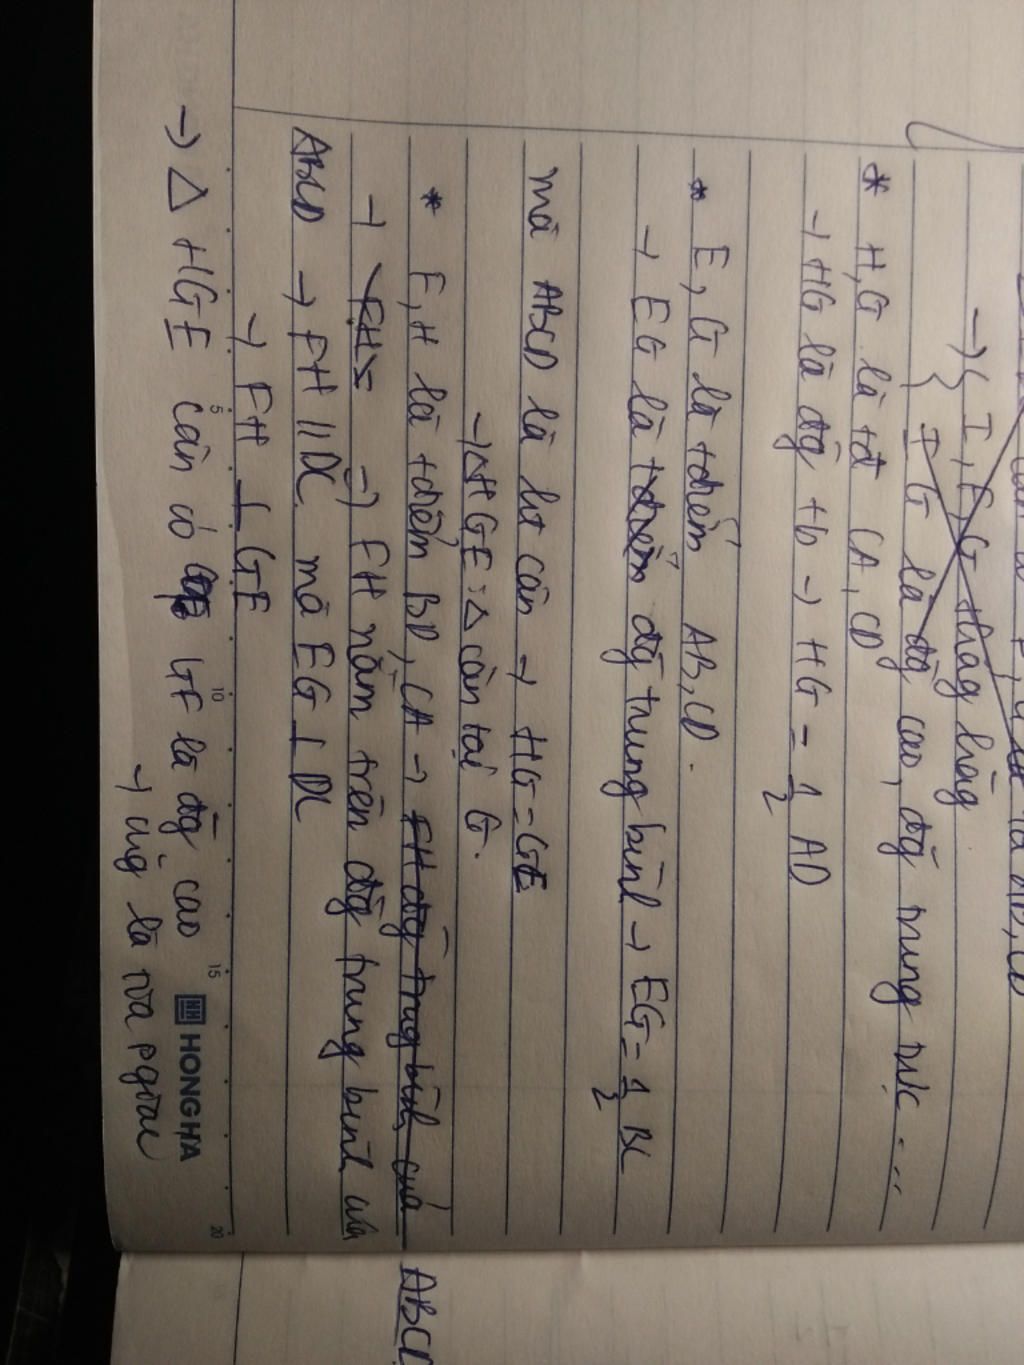 → { I, E, G thẳng hàng
{ IG là đg cao, đg trung trực ...
* H, G là tđ CA, CD
→ HG là đg tb → HG = 1/2 AD
* E, G là tđiểm AB, CD.
→ EG là tđiểm đg trung bình → EG = 1/2 BC
mà ABCD là ht cân → HG = GE
→ △HGE : △ cân tại G.
* F, H là tđiểm BD, CA → FH đường trung bình của ABCD
→ FH = → FH nằm trên đg trung bình của
ABCD → FH // DC mà EG ⊥ DC
→ FH ⊥ GE
→ △ HGE cân có GF là đg cao
→ cũng là tia pgiác
5 10 15 20
HH HONG HA